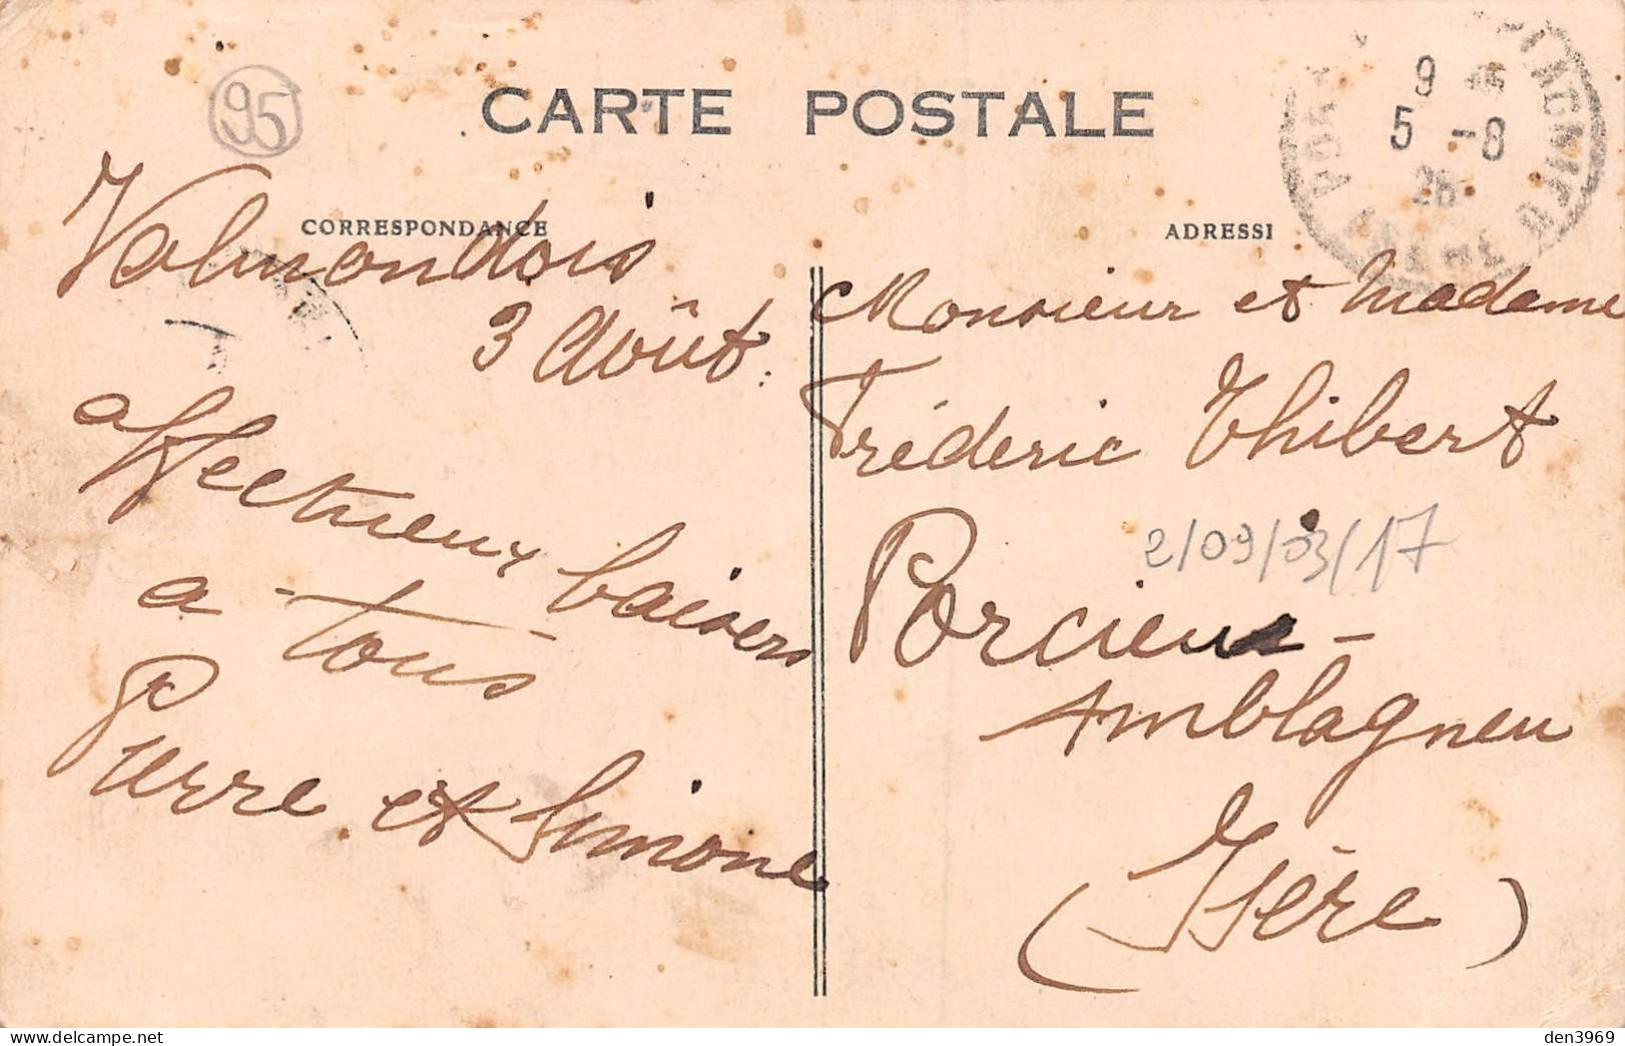 95
CARTE POSTALE
9 45
5 -8
25
CORRESPONDANCE
ADRESSE
Valmondois
3 Août.
affectueux baisers
a tous
Pierre et Simone
Monsieur et Madame
Fréderic Thibert
2/09/03/17
Porcieu -
Amblagneu
(Isère)
den3969